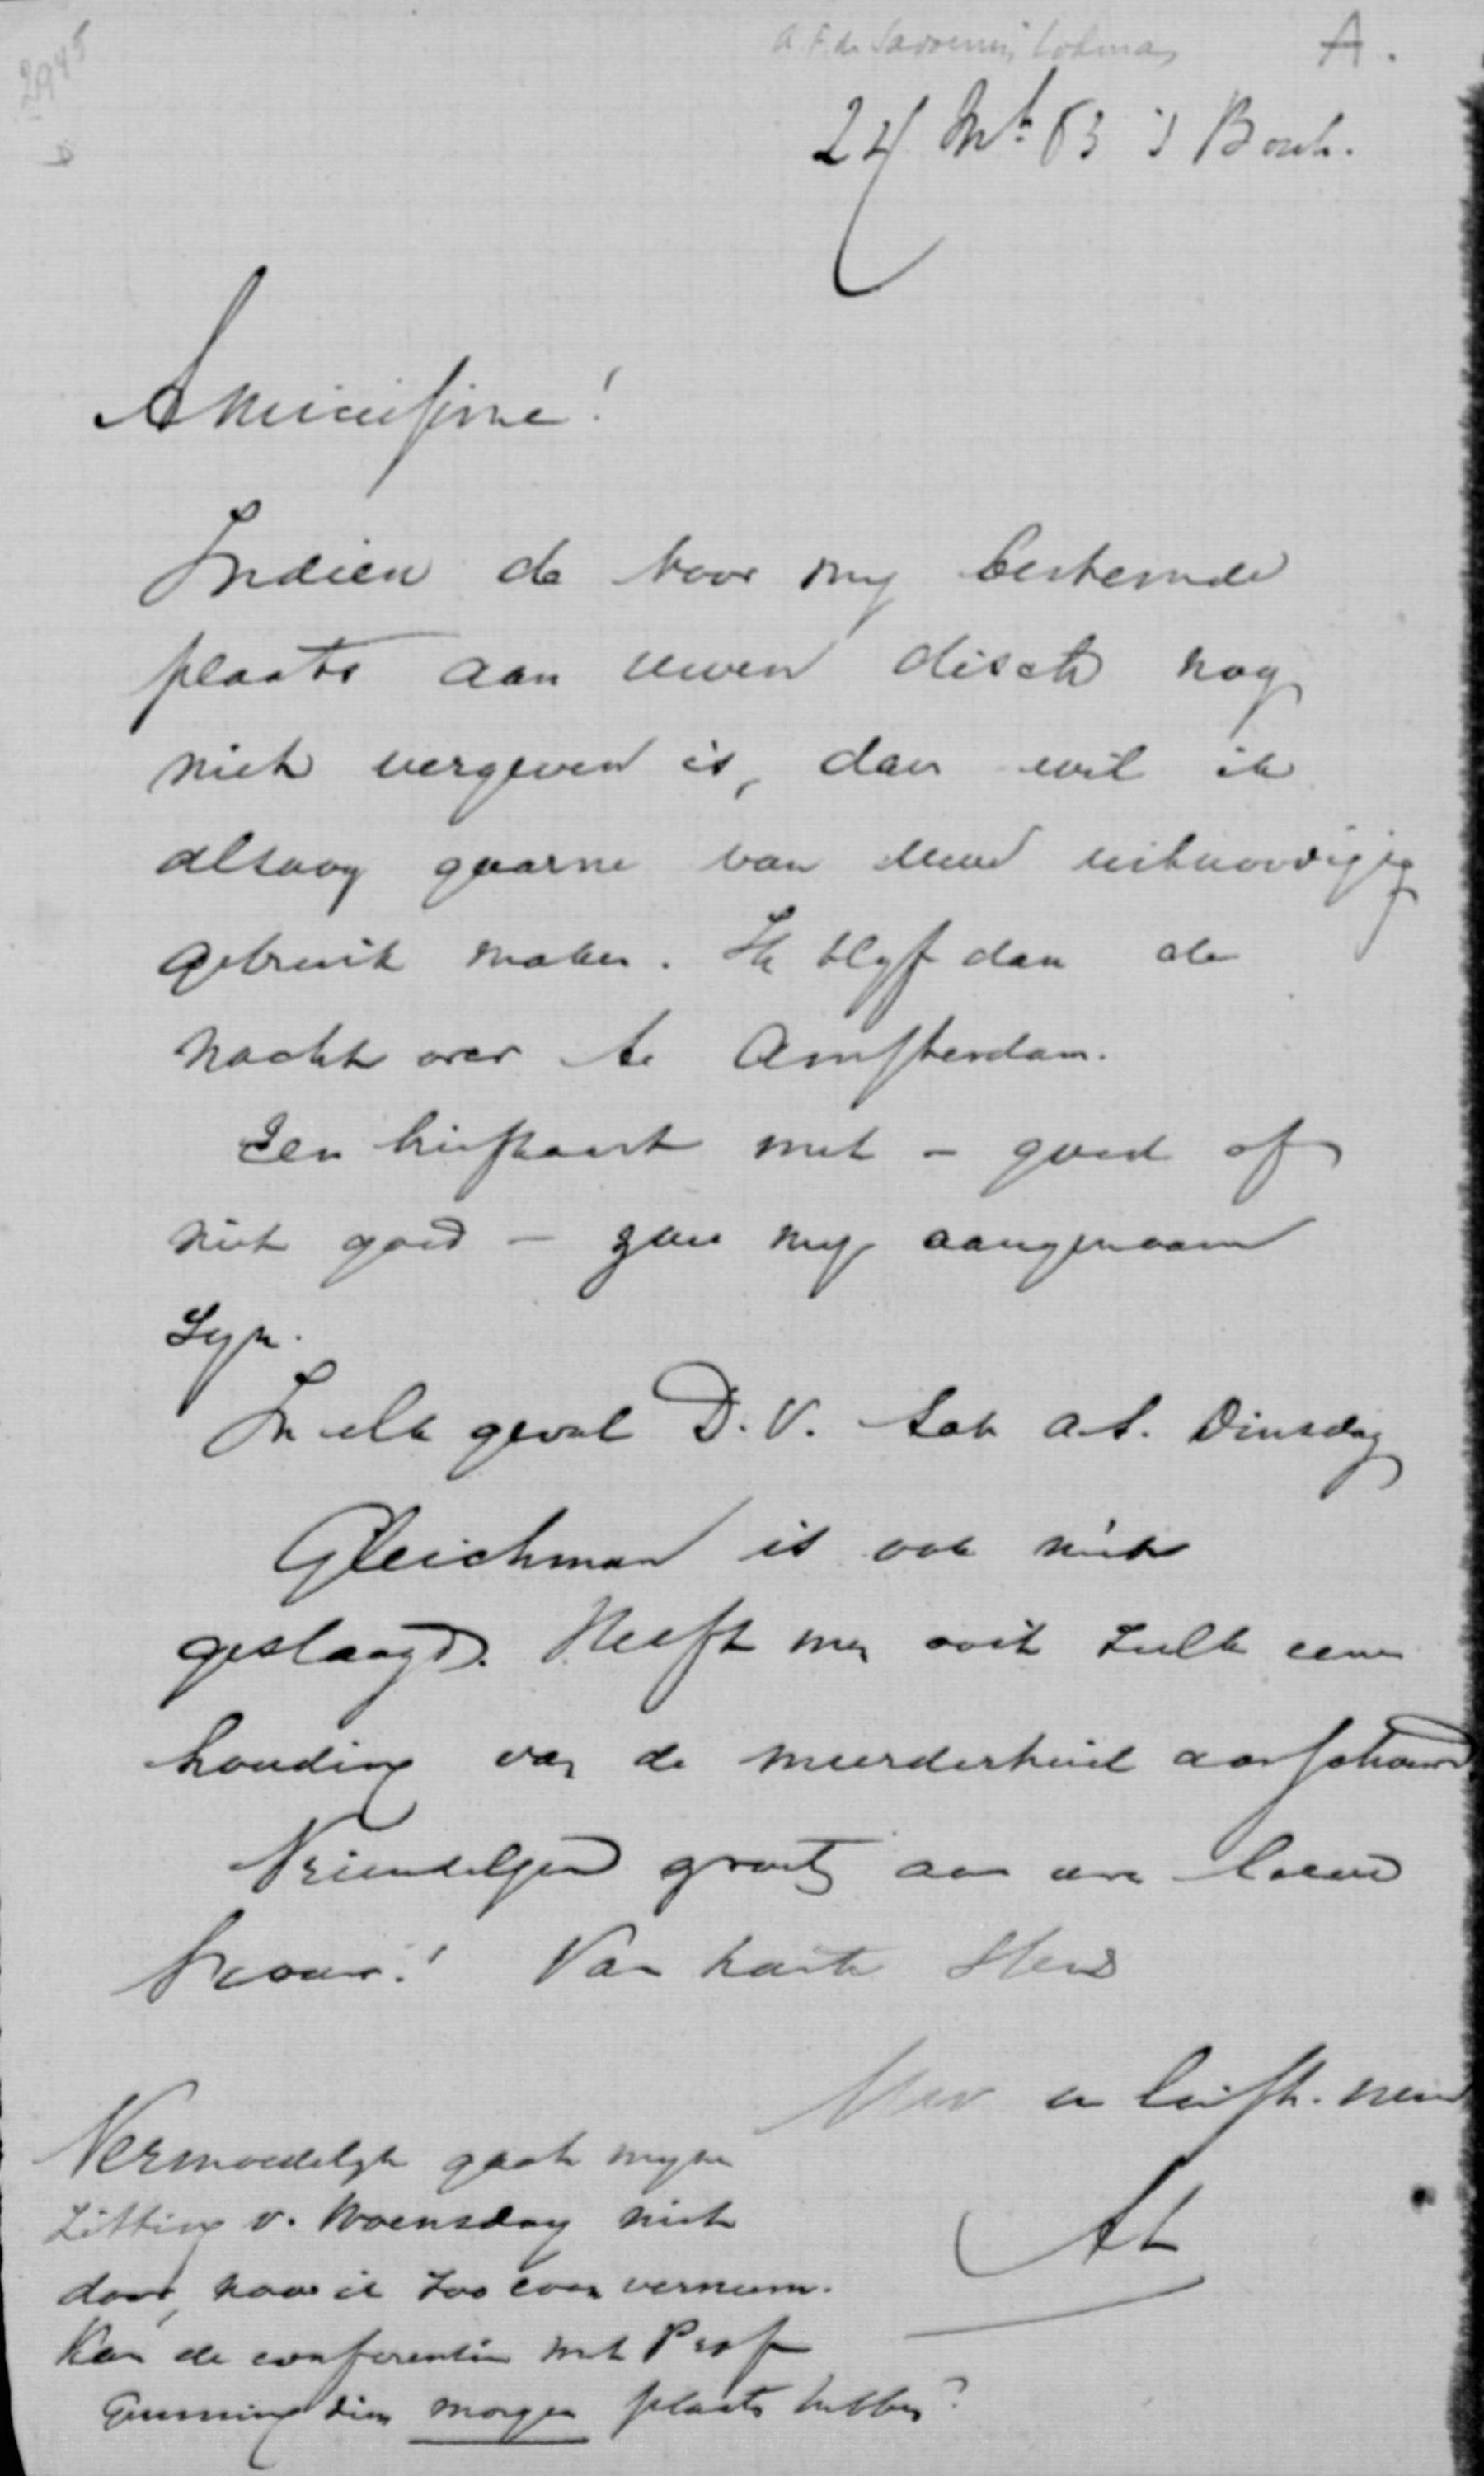 2945
A.F. de Savornin Lohman A.
24 Mt 83 's Bosch.
Amicissime!
Indien de voor my bestemde
plaats aan uwen disch nog
niet vergeven is, dan wil ik
alsnog gaarne van uwe uitnoodiging
gebruik maken. Ik blyf dan de
nacht over te Amsterdam.
Een briefkaart met – goed of
niet goed – zou my aangenaam
zyn.
In elk geval D.V. tot a.s. Dinsdag
Gleichman is ook niet
geslaagd. Heeft men ooit zulk eene
houding van de meerderheid aanschouwd
Vriendelyke groete aan uwe lieve
vrouw! Van harte steeds
Uw
AL
Vermoedelyk gaat myne
zitting v. Woensdag niet
door, naar ik zoo even vernam.
Kan de conferentie met Prof
Gunning dien morgen plaats hebben?